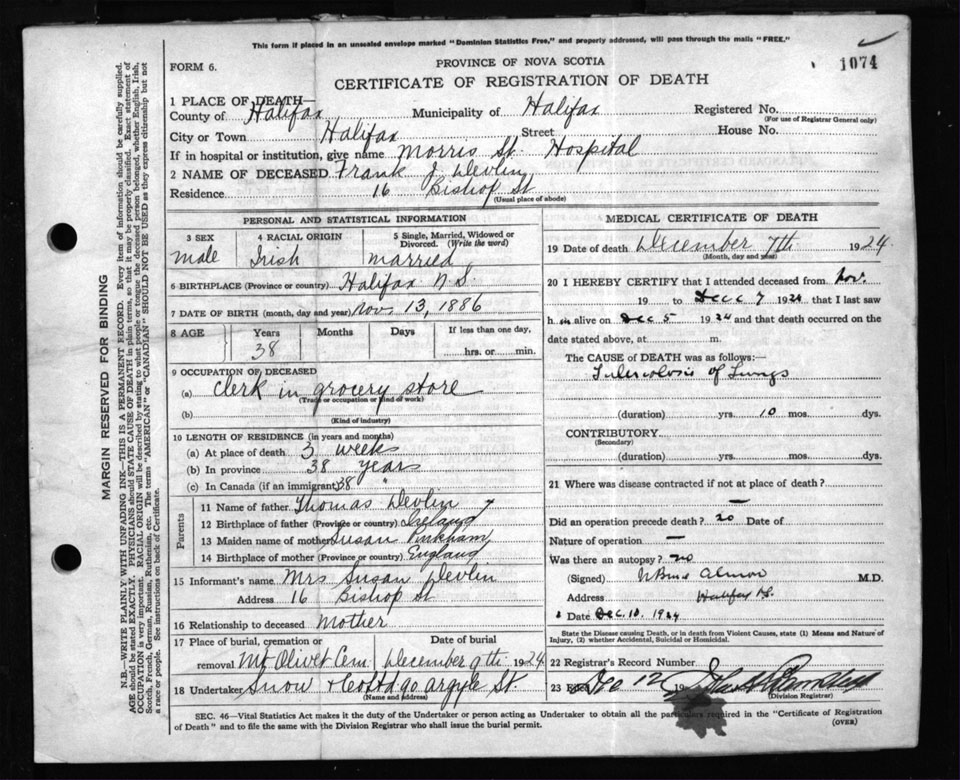 This form if placed in an unsealed envelope marked "Dominion Statistics Free," and properly addressed, will pass through the mails "FREE."
FORM 6.
PROVINCE OF NOVA SCOTIA
1074
CERTIFICATE OF REGISTRATION OF DEATH
1 PLACE OF DEATH—
County of Halifax Municipality of Halifax Registered No.
(For use of Registrar General only)
City or Town Halifax Street House No.
If in hospital or institution, give name Morris St. Hospital
2 NAME OF DECEASED Frank J. Devlin
Residence 16 Bishop St
(Usual place of abode)
PERSONAL AND STATISTICAL INFORMATION
3 SEX 4 RACIAL ORIGIN 5 Single, Married, Widowed or Divorced. (Write the word)
male Irish married
6 BIRTHPLACE (Province or country) Halifax N.S.
7 DATE OF BIRTH (month, day and year) Nov. 13, 1886
8 AGE Years Months Days If less than one day,
38 hrs. or min.
9 OCCUPATION OF DECEASED
(a) Clerk in grocery store
(Trade or occupation or kind of work)
(b)
(Kind of industry)
10 LENGTH OF RESIDENCE (in years and months)
(a) At place of death 3 weeks
(b) In province 38 years
(c) In Canada (if an immigrant) 38 "
Parents
11 Name of father Thomas Devlin
12 Birthplace of father (Province or country) Ireland
13 Maiden name of mother Susan Pinkham
14 Birthplace of mother (Province or country) England
15 Informant's name Mrs Susan Devlin
Address 16 Bishop St
16 Relationship to deceased Mother
17 Place of burial, cremation or Date of burial
removal Mt Olivet Cem. December 9th. 1924
18 Undertaker Snow & Co Ltd 90 Argyle St
(Name and address)
MEDICAL CERTIFICATE OF DEATH
19 Date of death December 7th 1924
(Month, day and year)
20 I HEREBY CERTIFY that I attended deceased from Nov.
19 to Dec 7 1924 that I last saw
h im alive on Dec 5 1924 and that death occurred on the
date stated above, at m.
The CAUSE of DEATH was as follows:—
Tuberculosis of Lungs
(duration) yrs. 10 mos. dys.
CONTRIBUTORY
(Secondary)
(duration) yrs. mos. dys.
21 Where was disease contracted if not at place of death?
—
Did an operation precede death? no Date of
Nature of operation —
Was there an autopsy? no
(Signed) Almon M.D.
Address Halifax
Date Dec. 10. 1924
State the Disease causing Death, or in death from Violent Causes, state (1) Means and Nature of Injury, (2) whether Accidental, Suicidal or Homicidal.
22 Registrar's Record Number
23 Filed Dec 12 19
(Division Registrar)
SEC. 46—Vital Statistics Act makes it the duty of the Undertaker or person acting as Undertaker to obtain all the particulars required in the "Certificate of Registration
of Death" and to file the same with the Division Registrar who shall issue the burial permit.
(OVER)
MARGIN RESERVED FOR BINDING
N.B.—WRITE PLAINLY WITH UNFADING INK—THIS IS A PERMANENT RECORD. Every item of information should be carefully supplied.
AGE should be stated EXACTLY. PHYSICIANS should STATE CAUSE OF DEATH in plain terms, so that it may be properly classified. Exact statement of
OCCUPATION is very important. RACIAL ORIGIN will be described by stating to what people or tongue the deceased person belonged, whether English, Irish,
Scotch, French, German, Russian, Ruthenian, etc. The terms "AMERICAN" or "CANADIAN" SHOULD NOT BE USED as they express citizenship but not
a race or people. See instructions on back of Certificate.